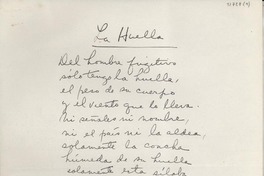 La Huella
Del hombre fugitivo
solo tengo la huella,
el peso de su cuerpo
y el viento que lo lleva.
Ni señales ni nombre,
ni el país ni la aldea,
solamente la concha
húmeda de su huella
solamente esta sílaba